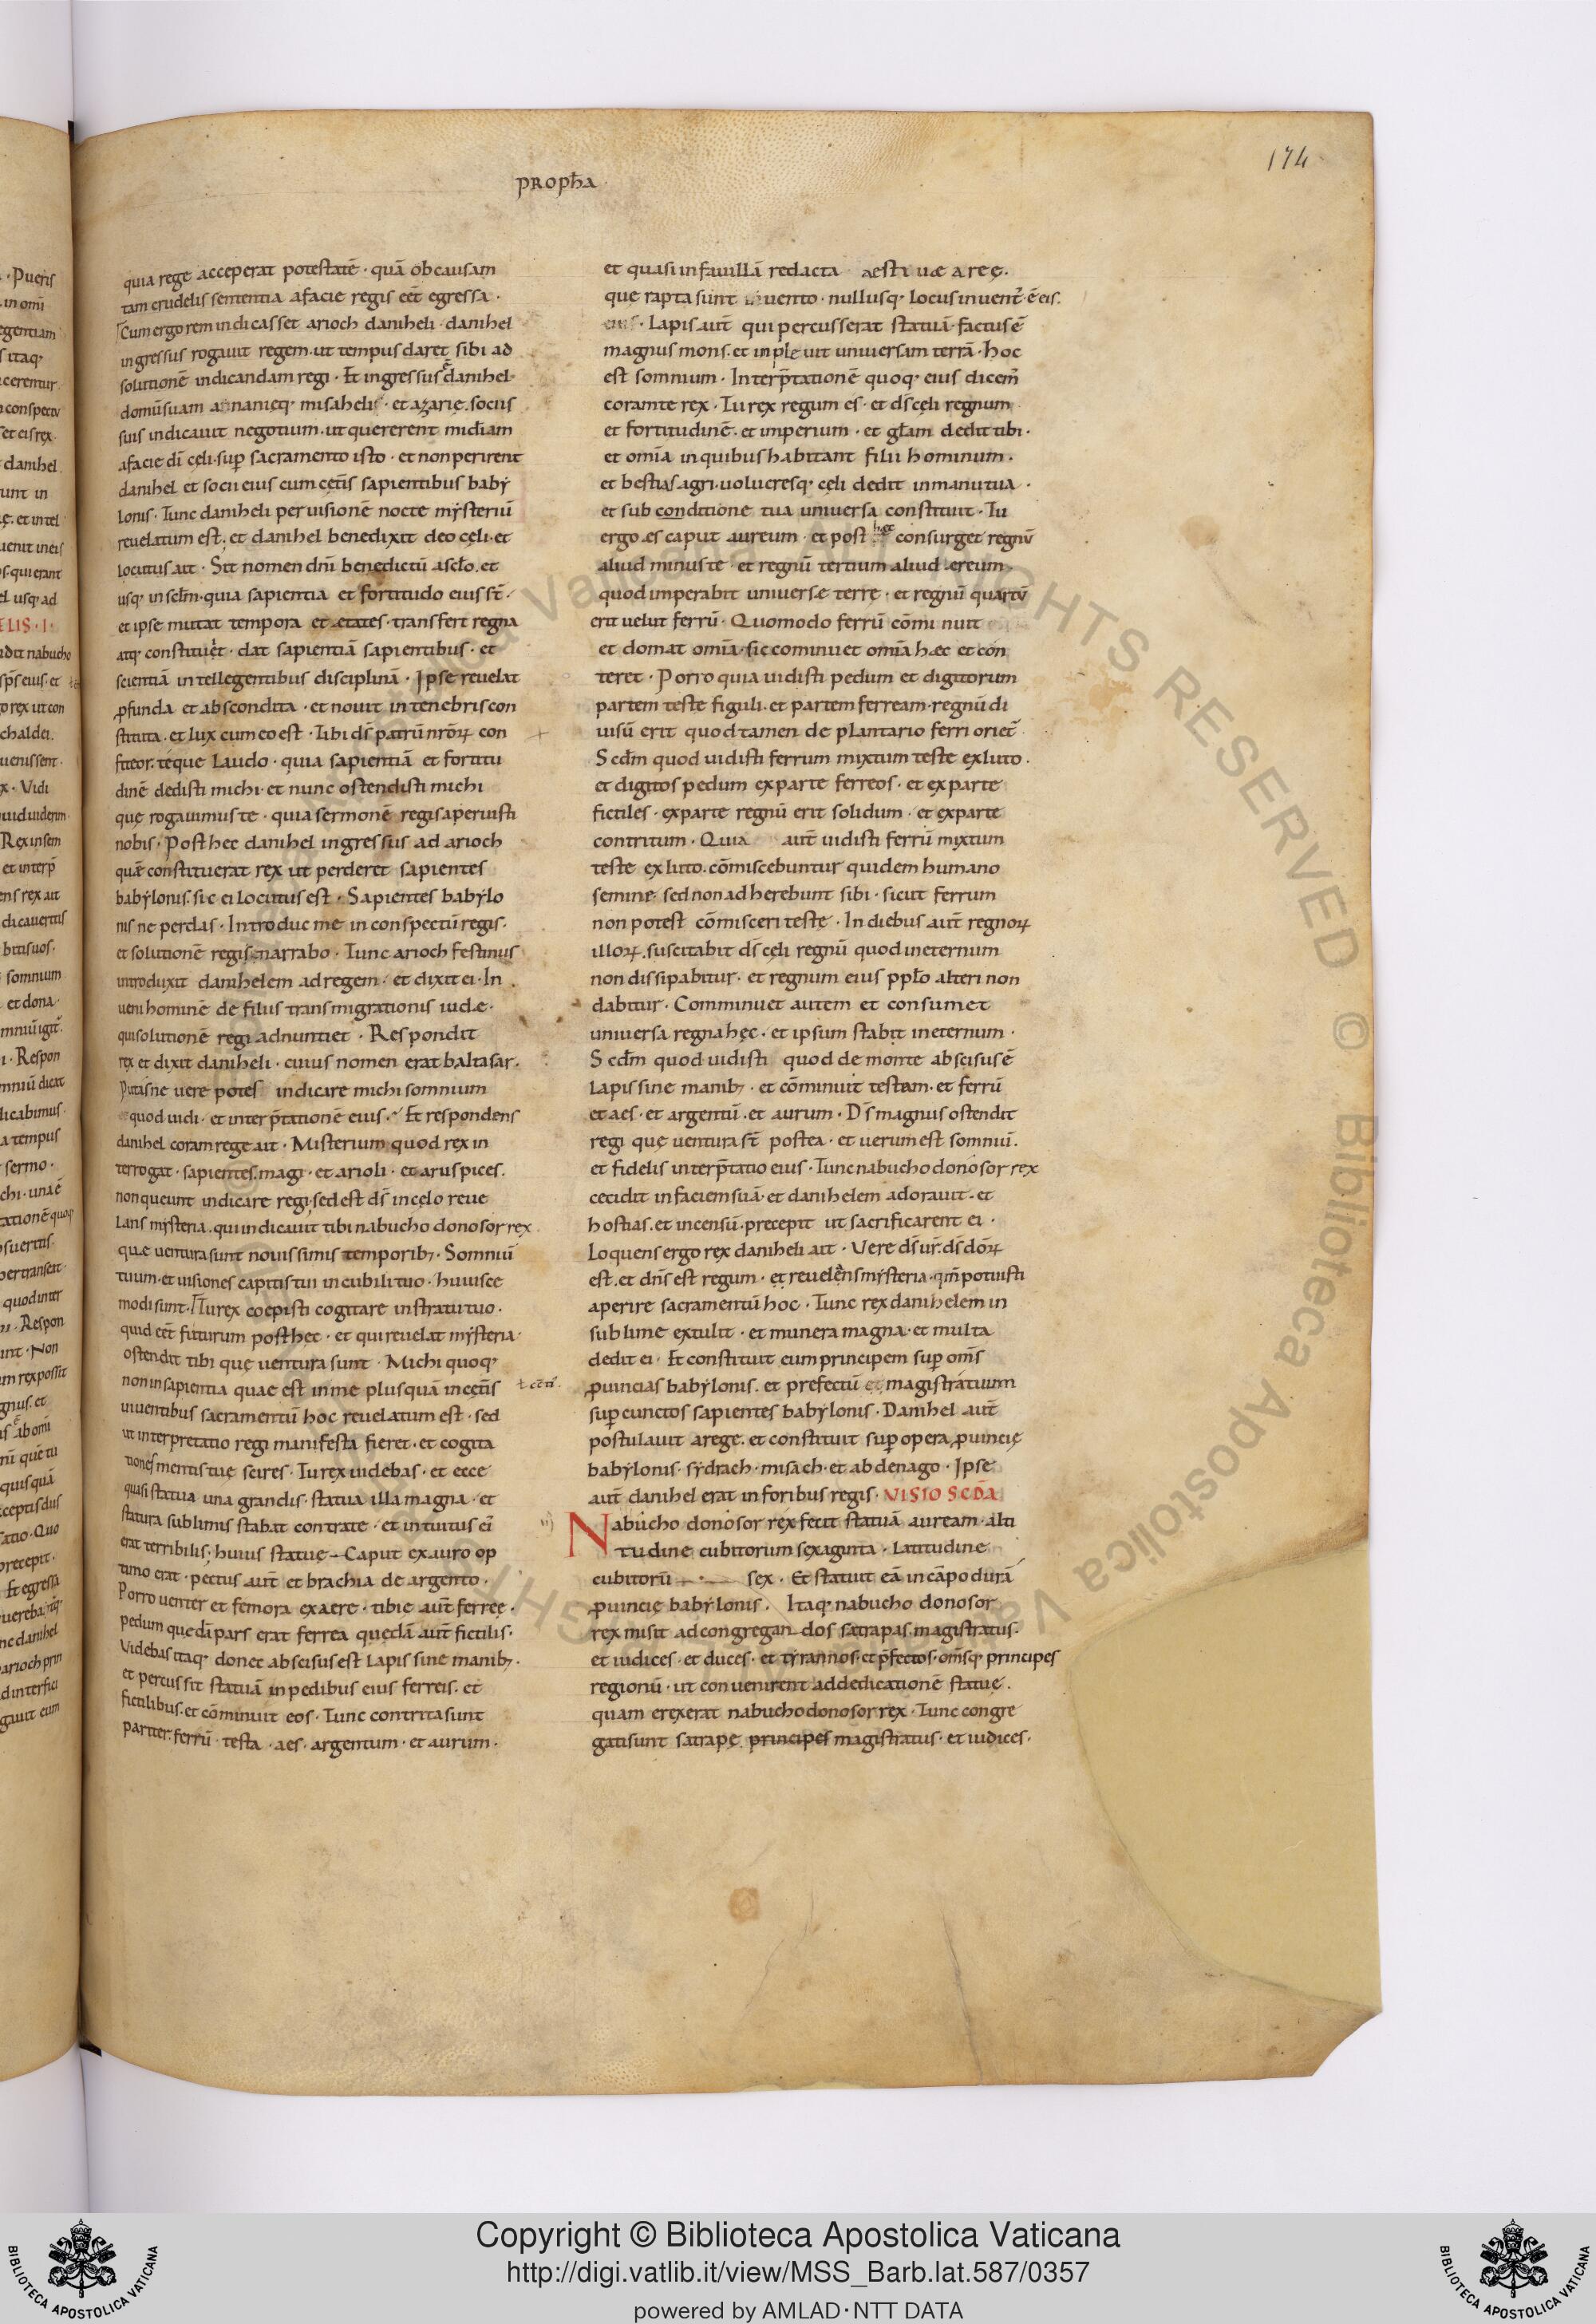 174
proph̄a
quia rege acceperat potestatē · quā ob causam
tam crudelis sententia a facie regis eēt egressa ·
Cum ergo rem indicasset arioch daniheli · danihel
ingressus rogauit regem · ut tempus daret sibi ad
solutionē indicandam regi · Et ingressus ē danihel
domū suam ananieq; misaheli · et azarię · sociis
suis indicauit negotium · ut quererent mīdiam
a facie dī cęli · sup̄ sacramento isto · et non perirent
danihel et socii eius cum cęt̄is sapientibus baby
lonis · Tunc daniheli per uisionē nocte mẏsteriū
reuelatum est · et danihel benedixit deo cęli · et
locutus ait · Sit nomen dn̄i benedictū a sc̄lo · et
usq; in sc̄lm · quia sapientia et fortitudo eius st̄ ·
et ipse mutat tempora et ętates · transfert regna
atq; constituet · dat sapientiā sapientibus · et
scientiā intellegentibus disciplinā · Ipse reuelat
ꝓfunda et abscondita · et nouit in tenebris con
stituta · et lux cum eo est · Tibi ds̄ patrū nr̄oꝝ con
fiteor · teque laudo · quia sapientiā et fortitu
dinē dedisti michi · et nunc ostendisti michi
quę rogauimus te · quia sermonē regis aperuisti
nobis · Post hec danihel ingressus ad arioch
quē constituerat rex ut perderet sapientes
babẏlonis · sic ei locutus est · Sapientes babẏlo
nis ne perdas · Introduc me in conspectū regis ·
et solutionē regi narrabo · Tunc arioch festinus
introduxit danihelem ad regem · et dixit ei · In
ueni hominē de filiis transmigrationis iudę ·
qui solutionē regi adnuntiet · Respondit
rex et dixit daniheli · cuius nomen erat baltasar ·
Putasne uere potes indicare michi somnium
quod uidi · et interp̄tationē eius · Et respondens
danihel coram rege ait · Misterium quod rex in
terrogat · sapientes · magi · et arioli · et aruspices ·
non queunt indicare regi · sed est ds̄ in cęlo reue
lans mẏsteria · qui indicauit tibi nabuchodonosor rex
quę uentura sunt nouissimis temporibꝫ · Somniū
tuum · et uisiones capitis tui in cubili tuo · huiusce
modi sunt · Tu rex coepisti cogitare in stratu tuo ·
quid eēt futurum post hec · et qui reuelat mẏsteria ·
ostendit tibi quę uentura sunt · Michi quoq;
non in sapientia quae est in me plusquā in cęt̄is
uiuentibus sacramentū hoc reuelatum est · sed
ut interpretatio regi manifesta fieret · et cogita
tiones mentis tuę scires · Tu rex uidebas · et ecce
quasi statua una grandis · statua illa magna · et
statura sublimis stabat contra te · et intuitus ei'
erat terribilis · huius statuę caput ex auro op
timo erat · pectus aut̄ et brachia de argento ·
Porro uenter et femora ex aere · tibię aut̄ ferreę ·
pedum quedā pars erat ferrea quędā aut̄ fictilis ·
Videbas itaq; donec abscisus est lapis sine manibꝫ ·
et percussit statuā in pedibus eius ferreis · et
fictilibus · et cōminuit eos · Tunc contrita sunt
pariter · ferrū · testa · aes · argentum · et aurum ·
et quasi in fauillā redacta aestiuae areę ·
que rapta sunt uento · nullusq; locus inuent̄ ē eis ·
Lapis aut̄ qui percusserat statuā · factus ē
magnus mons · et impleuit uniuersam terrā · hoc
est somnium · Interp̄tationē quoq; eius dicem̄
coram te rex · Tu rex regum es · et ds̄ cęli regnum
et fortitudinē · et imperium · et gl̄am dedit tibi ·
et omīa in quibus habitant filii hominum ·
et bestias agri · uolucresq; cęli dedit in manu tua ·
et sub conditione tua uniuersa constituit · Tu
ergo es caput aureum · et post hęc consurget regnū
aliud minus te · et regnū tertium aliud ęreum ·
quod imperabit uniuersę terrę · et regnū quartū
erit uelut ferrū · Quomodo ferrū cōminuit
et domat omīa · sic cominuet omīa hęc et con
teret · Porro quia uidisti pedum et digitorum
partem testę figuli · et partem ferream · regnū di
uisū erit quod tamen de plantario ferri oriet̄
Scd̄m quod uidisti ferrum mixtum testę ex luto ·
et digitos pedum ex parte ferreos · et ex parte
fictiles · ex parte regnū erit solidum · et ex parte
contritum · Quia aut̄ uidisti ferrū mixtum
testę ex luto · cōmiscebuntur quidem humano
semine · sed non adherebunt sibi · sicut ferrum
non potest cōmisceri testę · In diebus aut̄ regnoꝝ
illoꝝ · suscitabit ds̄ cęli regnū quod in eternum
non dissipabitur · et regnum eius ppl̄o alteri non
dabitur · Comminuet autem et consumet
uniuersa regna hęc · et ipsum stabit in eternum ·
Scd̄m quod uidisti quod de monte abscisus ē
lapis sine manibꝫ · et cōminuit testam · et ferrū
et aes · et argentū · et aurum · Ds̄ magnus ostendit
regi quę uentura st̄ postea · et uerum est somniū ·
et fidelis interp̄tatio eius · Tunc nabuchodonosor rex
cecidit in faciem suā · et danihelem adorauit · et
hostias · et incensū · precepit ut sacrificarent ei ·
Loquens ergo rex daniheli ait · Vere ds̄ ur̄ · ds̄ d̄oꝝ
est · et dn̄s est regum · et reuelens mẏsteria · qm̄ potuisti
aperire sacramentū hoc · Tunc rex danihelem in
sublime extulit · et munera magna · et multa
dedit ei · Et constituit eum principem sup̄ om̄s
ꝓuincias babẏlonis · et prefectū et magistratuum
sup̄ cunctos sapientes babẏlonis · Danihel aut̄
postulauit a rege · et constituit sup̄ opera ꝓuincię
babẏlonis · sẏdrach · misach · et abdenago · Ipse
aut̄ danihel erat in foribus regis · VISIO SCDA
Nabuchodonosor rex fecit statuā auream · alti
tudine cubitorum sexaginta · latitudine
cubitorū sex · Et statuit eā in cāpo durā
ꝓuincię babẏlonis · Itaq; nabuchodonosor
rex misit ad congregandos satrapas · magistratus ·
et iudices · et duces · et tẏrannos · et p̄fectos · om̄sq; principes
regionū · ut conuenirent ad dedicationē statuę ·
quam erexerat nabuchodonosor rex · Tunc congre
gati sunt satrapę principes magistratus · et iudices ·
Copyright © Biblioteca Apostolica Vaticana
http://digi.vatlib.it/view/MSS_Barb.lat.587/0357
powered by AMLAD·NTT DATA